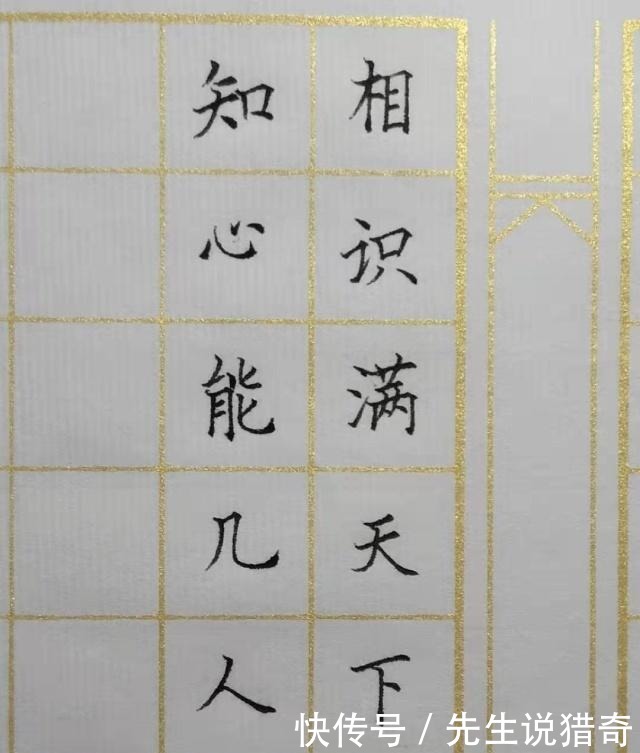 相识满天下
知心能几人
快传号 / 先生说猎奇